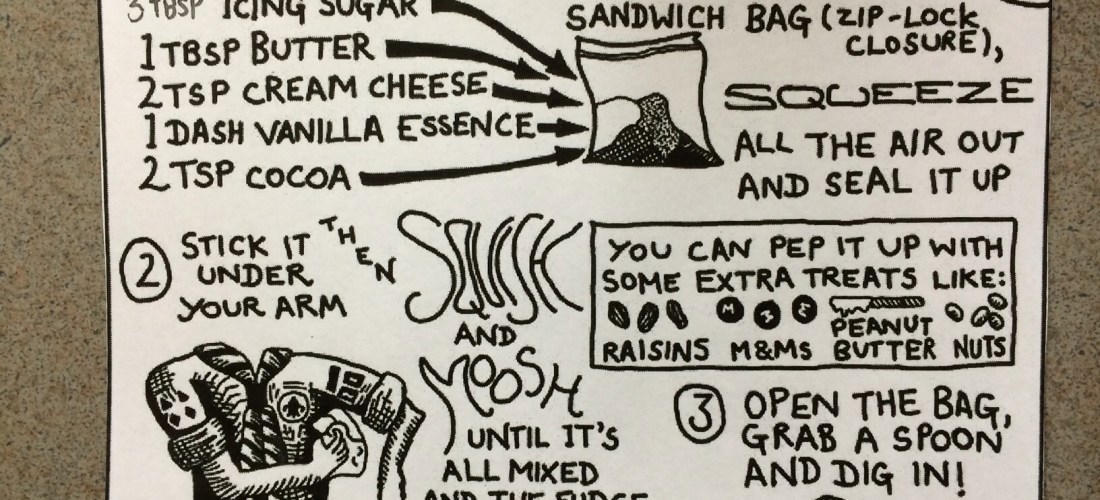 3 TBSP ICING SUGAR
1 TBSP BUTTER
2 TSP CREAM CHEESE
1 DASH VANILLA ESSENCE
2 TSP COCOA
SANDWICH BAG (ZIP-LOCK
CLOSURE),
SQUEEZE
ALL THE AIR OUT
AND SEAL IT UP
2 STICK IT
UNDER
YOUR ARM
THEN
SQUISH
AND
MOOSH
UNTIL IT'S
ALL MIXED
AND THE FUDGE
YOU CAN PEP IT UP WITH
SOME EXTRA TREATS LIKE:
RAISINS M&MS PEANUT BUTTER NUTS
3 OPEN THE BAG,
GRAB A SPOON
AND DIG IN!